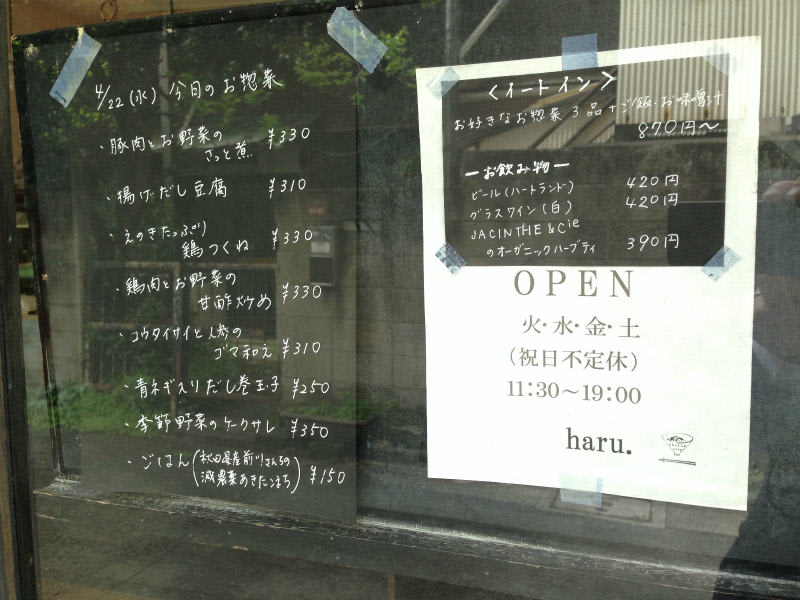 4/22(水) 今日のお惣菜
・豚肉とお野菜の
さっと煮 ¥330
・揚げだし豆腐 ¥310
・えのきたっぷり
鶏つくね ¥330
・鶏肉とお野菜の
甘酢炒め ¥330
・コウタイサイと人参の
ゴマ和え ¥310
・青ネギ入りだし巻玉子 ¥250
・季節野菜のケークサレ ¥350
・ごはん(秋田県産前川さんちの
減農薬あきたこまち) ¥150
<イートイン>
お好きなお惣菜3品+ご飯・お味噌汁
870円〜
ーお飲み物ー
ビール(ハートランド) 420円
グラスワイン(白) 420円
JACINTHE & Cie
のオーガニックハーブティ 390円
OPEN
火・水・金・土
(祝日不定休)
11:30〜19:00
haru.